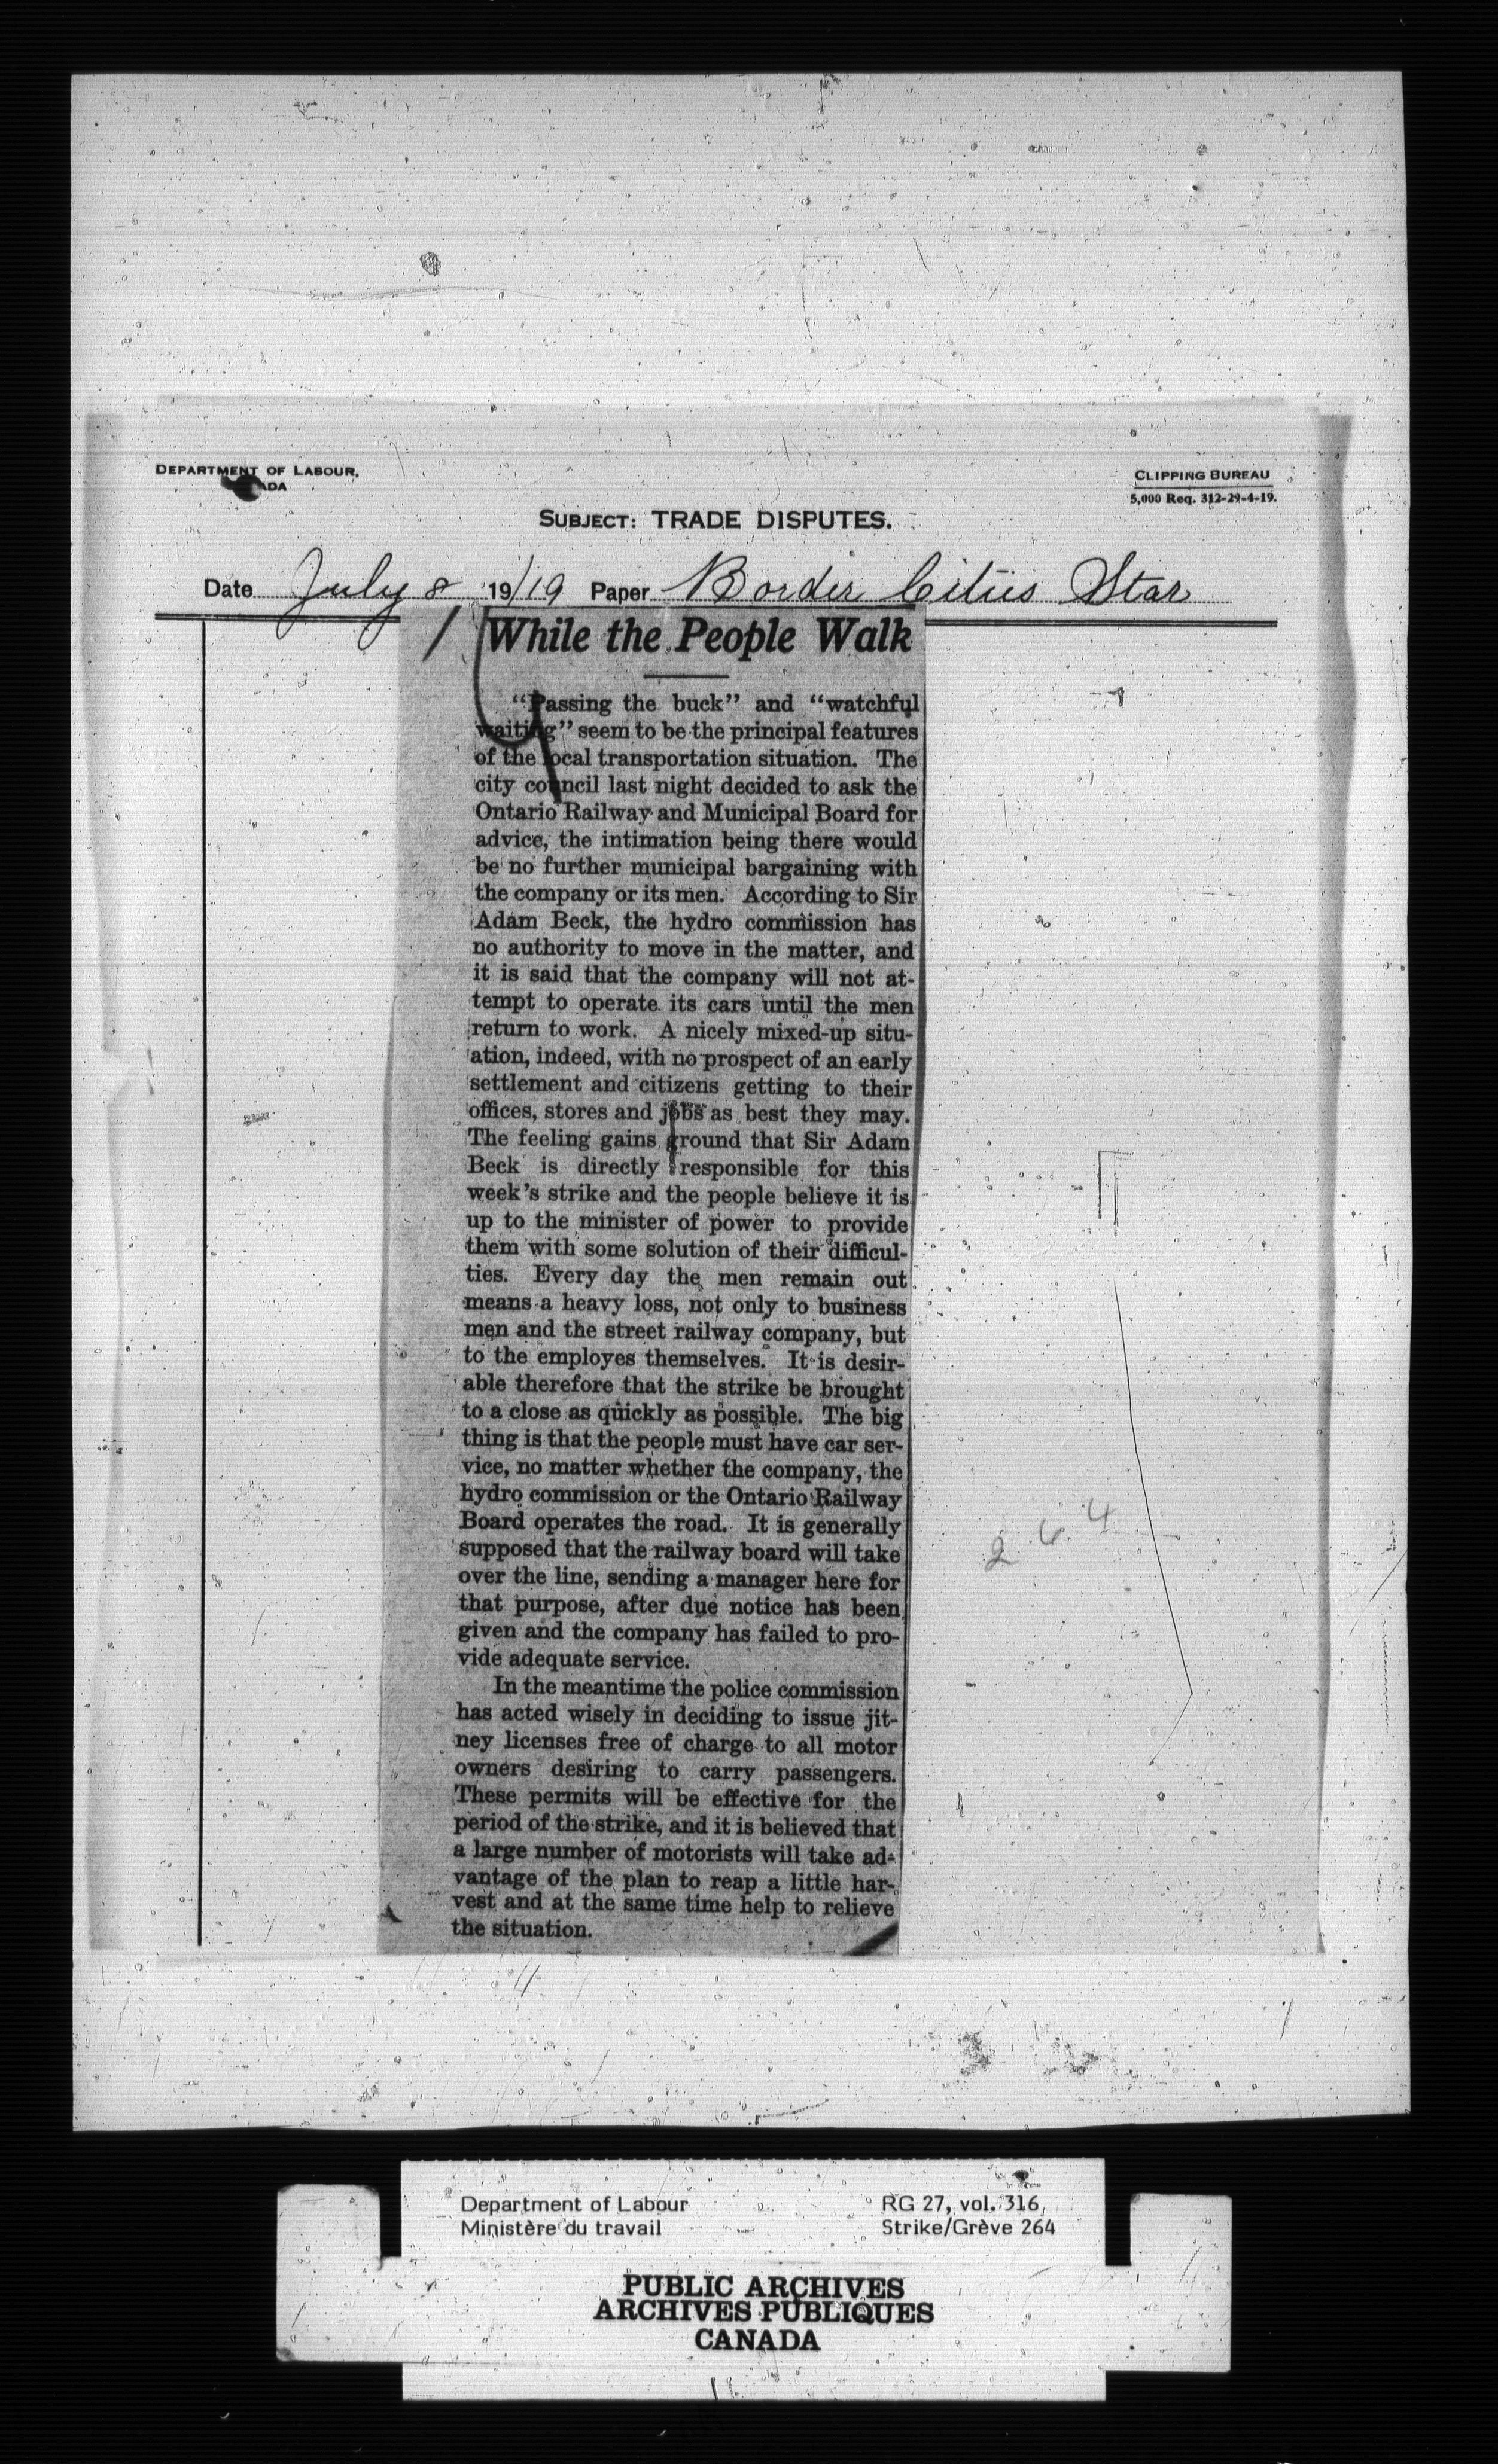 DEPARTMENT OF LABOUR,
ADA
CLIPPING BUREAU
5,000 Req. 312-29-4-19.
SUBJECT: TRADE DISPUTES.
Date July 8 19/19 Paper Border Cities Star
While the People Walk
"Passing the buck" and "watchful
waiting" seem to be the principal features
of the local transportation situation. The
city council last night decided to ask the
Ontario Railway and Municipal Board for
advice, the intimation being there would
be no further municipal bargaining with
the company or its men. According to Sir
Adam Beck, the hydro commission has
no authority to move in the matter, and
it is said that the company will not at-
tempt to operate its cars until the men
return to work. A nicely mixed-up situ-
ation, indeed, with no prospect of an early
settlement and citizens getting to their
offices, stores and jobs as best they may.
The feeling gains ground that Sir Adam
Beck is directly responsible for this
week's strike and the people believe it is
up to the minister of power to provide
them with some solution of their difficul-
ties. Every day the men remain out
means a heavy loss, not only to business
men and the street railway company, but
to the employes themselves. It is desir-
able therefore that the strike be brought
to a close as quickly as possible. The big
thing is that the people must have car ser-
vice, no matter whether the company, the
hydro commission or the Ontario Railway
Board operates the road. It is generally
supposed that the railway board will take
over the line, sending a manager here for
that purpose, after due notice has been
given and the company has failed to pro-
vide adequate service.
In the meantime the police commission
has acted wisely in deciding to issue jit-
ney licenses free of charge to all motor
owners desiring to carry passengers.
These permits will be effective for the
period of the strike, and it is believed that
a large number of motorists will take ad-
vantage of the plan to reap a little har-
vest and at the same time help to relieve
the situation.
264
Department of Labour
Ministère du travail
RG 27, vol. 316,
Strike/Grève 264
PUBLIC ARCHIVES
ARCHIVES PUBLIQUES
CANADA